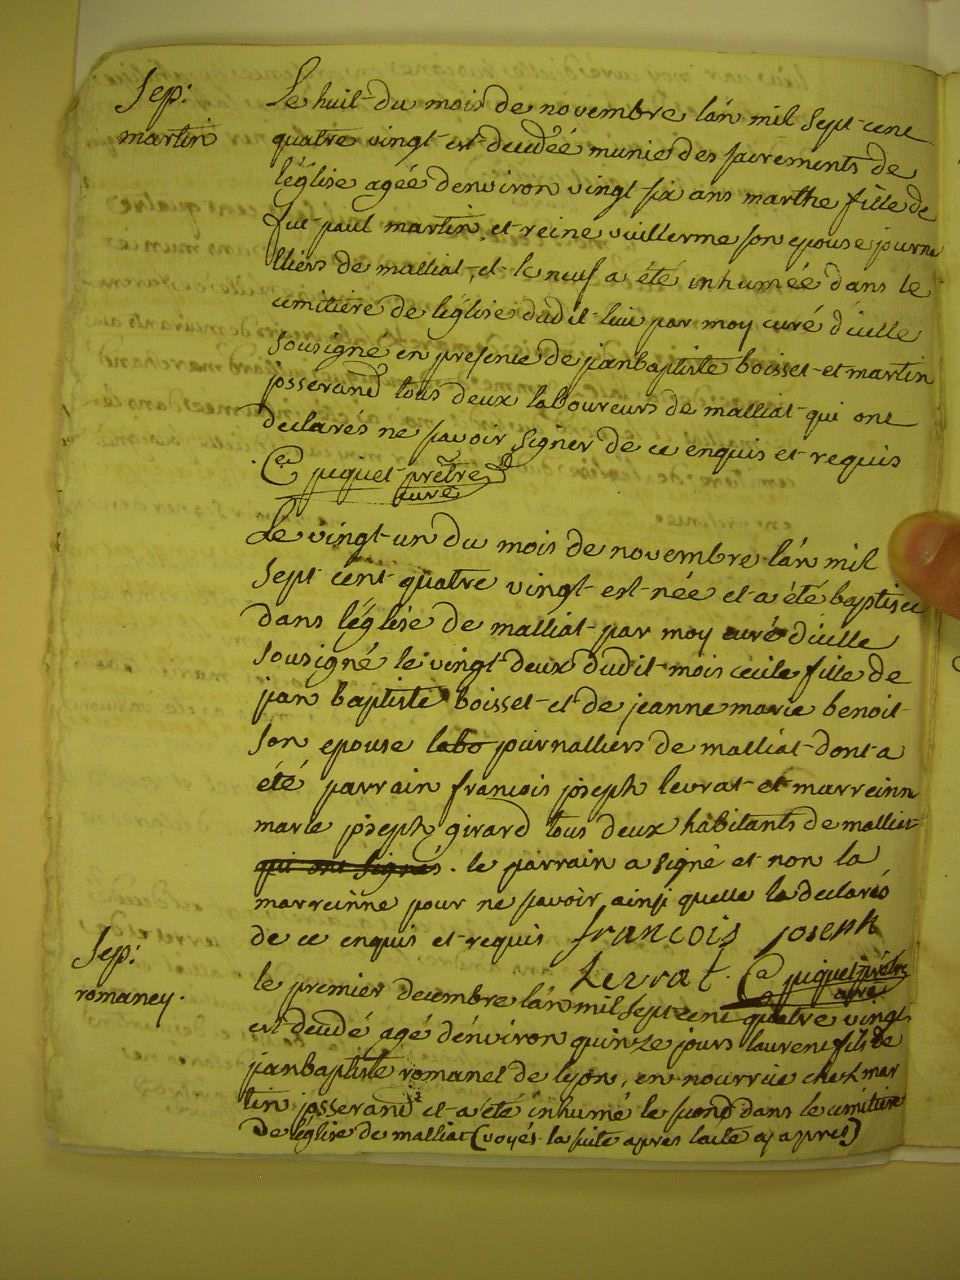 Sep:
martin
Le huit du mois de novembre l'an mil sept cent
quatre vingt est decedéé munie des sacrements de
l'église agée denviron vingt six ans marthe fille de
fut paul martin et reine vuillerme son epouse journa
lliers de malliat, et le neuf a été inhumée dans le
cimitiere de l'église dudit lui par moy curé d'icelle
sousigné en presence de jan baptiste boisset et martin
josserand tous deux laboureurs de malliat qui ont
declarés ne savoir signer de ce enquis et requis
piquet prêtre
curé
Le vingt un du mois de novembre l'an mil
sept cent quatre vingt est née et a été baptisée
dans l'église de malliat par moy curé d'icelle
sousigné le vingt deux dudit mois cecile fille de
jan baptiste boisset et de jeanne marie benoit
son epouse labo journalliers de malliat dont a
été parrain francois joseph levrat et marreinn
marie joseph girard tous deux habitants de malliat
qui ont signés. le parrain a signé et non la
marreinne pour ne savoir ainsi quelle la declarés
de ce enquis et requis francois joseph
Levrat. piquet prêtre
curé
Sep:
romaney.
le premier decembre l'an mil sept cent quatre vingt
est decedé agé d'environ quinze jours laurent fils de
jan baptiste romanet de lyon, en nourrice chesh mar
tin josserand et a été inhumé le second dans le cimitiere
De léglise de malliat (voyés la suite apres lacte cy apres)